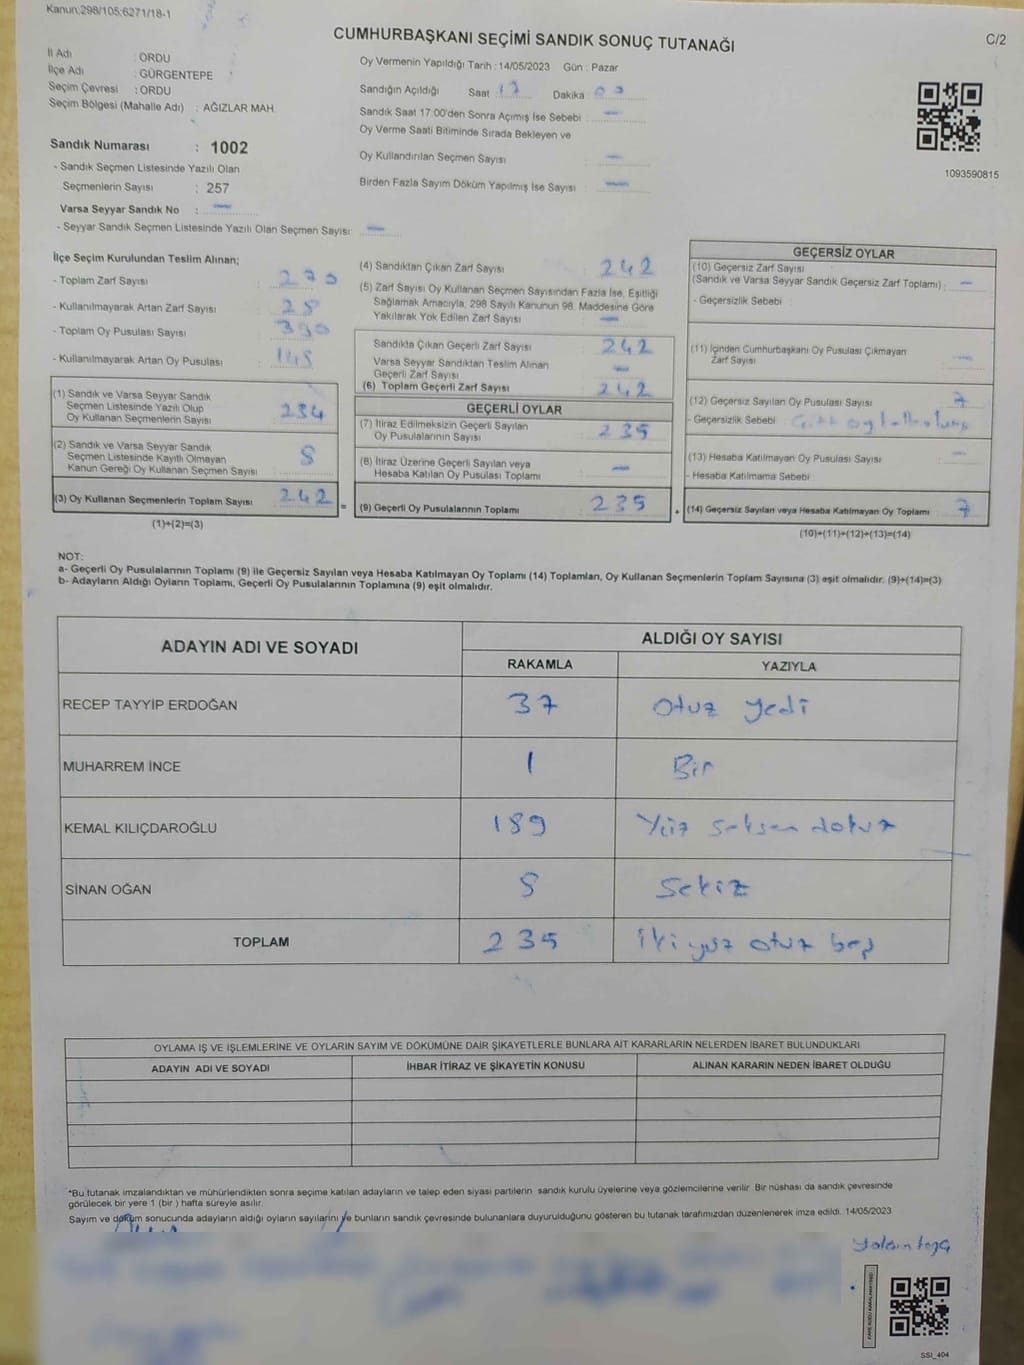 Kanun:298/105;6271/18-1
CUMHURBAŞKANI SEÇİMİ SANDIK SONUÇ TUTANAĞI
C/2
İl Adı : ORDU
İlçe Adı : GÜRGENTEPE
Seçim Çevresi : ORDU
Seçim Bölgesi (Mahalle Adı) : AĞIZLAR MAH.
Oy Vermenin Yapıldığı Tarih : 14/05/2023 Gün : Pazar
Sandığın Açıldığı Saat 17 Dakika 00
Sandık Saat 17:00'den Sonra Açımış İse Sebebi : —
Oy Verme Saati Bitiminde Sırada Bekleyen ve
Oy Kullandırılan Seçmen Sayısı : —
Birden Fazla Sayım Döküm Yapılmış İse Sayısı : —
1093590815
Sandık Numarası : 1002
- Sandık Seçmen Listesinde Yazılı Olan
Seçmenlerin Sayısı : 257
Varsa Seyyar Sandık No : —
- Seyyar Sandık Seçmen Listesinde Yazılı Olan Seçmen Sayısı: —
İlçe Seçim Kurulundan Teslim Alınan;
- Toplam Zarf Sayısı : 270
- Kullanılmayarak Artan Zarf Sayısı : 28
- Toplam Oy Pusulası Sayısı : 390
- Kullanılmayarak Artan Oy Pusulası : 148
(1) Sandık ve Varsa Seyyar Sandık
Seçmen Listesinde Yazılı Olup
Oy Kullanan Seçmenlerin Sayısı : 234
(2) Sandık ve Varsa Seyyar Sandık
Seçmen Listesinde Kayıtlı Olmayan
Kanun Gereği Oy Kullanan Seçmen Sayısı : 8
(3) Oy Kullanan Seçmenlerin Toplam Sayısı : 242 =
(1)+(2)=(3)
(4) Sandıktan Çıkan Zarf Sayısı : 242
(5) Zarf Sayısı Oy Kullanan Seçmen Sayısından Fazla İse, Eşitliği
Sağlamak Amacıyla, 298 Sayılı Kanunun 98. Maddesine Göre
Yakılarak Yok Edilen Zarf Sayısı : —
Sandıkta Çıkan Geçerli Zarf Sayısı : 242
Varsa Seyyar Sandıktan Teslim Alınan
Geçerli Zarf Sayısı : —
(6) Toplam Geçerli Zarf Sayısı : 242
GEÇERLİ OYLAR
(7) İtiraz Edilmeksizin Geçerli Sayılan
Oy Pusulalarının Sayısı : 235
(8) İtiraz Üzerine Geçerli Sayılan veya
Hesaba Katılan Oy Pusulası Toplamı : —
(9) Geçerli Oy Pusulalarının Toplamı : 235 +
GEÇERSİZ OYLAR
(10) Geçersiz Zarf Sayısı
(Sandık ve Varsa Seyyar Sandık Geçersiz Zarf Toplamı) : —
- Geçersizlik Sebebi :
(11) İçinden Cumhurbaşkanı Oy Pusulası Çıkmayan
Zarf Sayısı : —
(12) Geçersiz Sayılan Oy Pusulası Sayısı : 7
- Geçersizlik Sebebi :
(13) Hesaba Katılmayan Oy Pusulası Sayısı : —
- Hesaba Katılmama Sebebi :
(14) Geçersiz Sayılan veya Hesaba Katılmayan Oy Toplamı : 7
(10)+(11)+(12)+(13)=(14)
NOT:
a- Geçerli Oy Pusulalarının Toplamı (9) ile Geçersiz Sayılan veya Hesaba Katılmayan Oy Toplamı (14) Toplamları, Oy Kullanan Seçmenlerin Toplam Sayısına (3) eşit olmalıdır. (9)+(14)=(3)
b- Adayların Aldığı Oyların Toplamı, Geçerli Oy Pusulalarının Toplamına (9) eşit olmalıdır.
ADAYIN ADI VE SOYADI
ALDIĞI OY SAYISI
RAKAMLA YAZIYLA
RECEP TAYYİP ERDOĞAN 37 Otuz yedi
MUHARREM İNCE 1 Bir
KEMAL KILIÇDAROĞLU 189 Yüz seksen dokuz
SİNAN OĞAN 8 Sekiz
TOPLAM 235 iki yüz otuz beş
OYLAMA İŞ VE İŞLEMLERİNE VE OYLARIN SAYIM VE DÖKÜMÜNE DAİR ŞİKAYETLERLE BUNLARA AİT KARARLARIN NELERDEN İBARET BULUNDUKLARI
ADAYIN ADI VE SOYADI İHBAR İTİRAZ VE ŞİKAYETİN KONUSU ALINAN KARARIN NEDEN İBARET OLDUĞU
*Bu tutanak imzalandıktan ve mühürlendikten sonra seçime katılan adayların ve talep eden siyasi partilerin sandık kurulu üyelerine veya gözlemcilerine verilir. Bir nüshası da sandık çevresinde
görülecek bir yere 1 (bir ) hafta süreyle asılır.
Sayım ve döküm sonucunda adayların aldığı oyların sayılarını ve bunların sandık çevresinde bulunanlara duyurulduğunu gösteren bu tutanak tarafımızdan düzenlenerek imza edildi. 14/05/2023
SSI_404